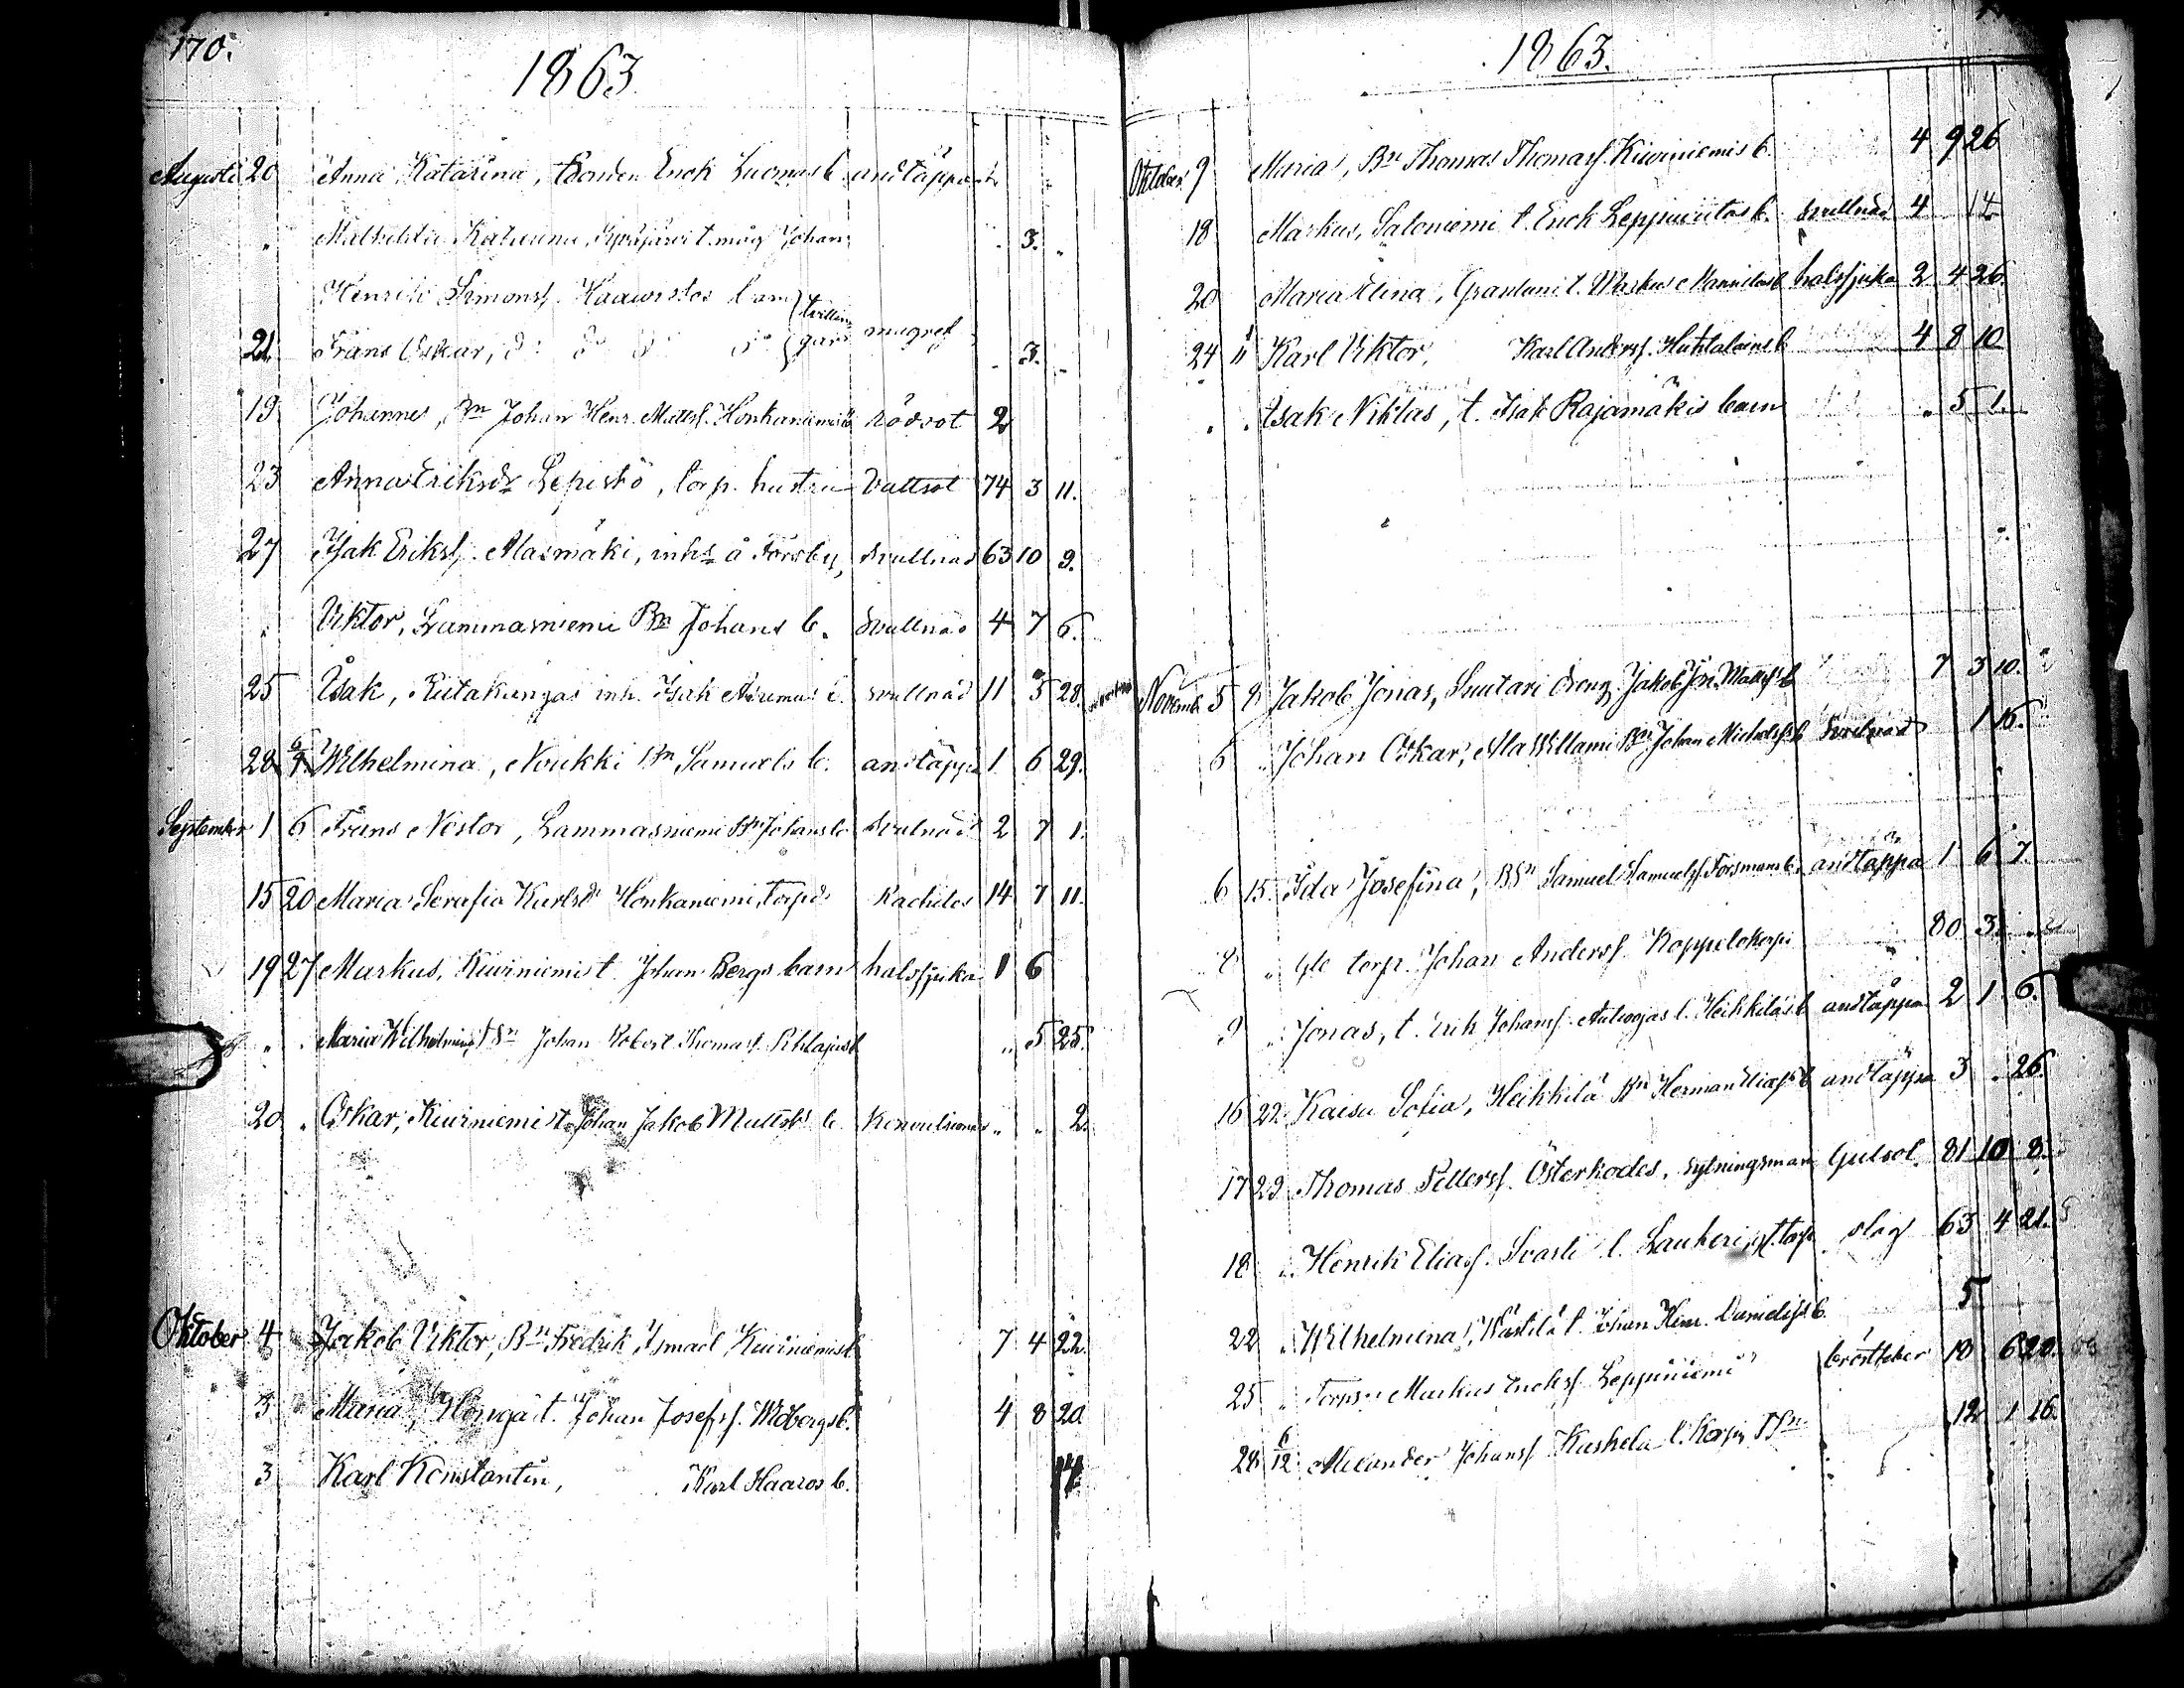 170.
1863
Augusti 20 Anna Katarina, Bonden Enok Luomas b. andtäppa
" Mathilda Katarina, t. måg Johan 3. "
Henrik Simonss. barn
21 Frans Oskar, do do do do tvillingar magref 3. "
19 Johannes, Bn Johan Henr. Matts. Honkaniemis b. rödsot 2
23 Anna Eriksdr Lepistö, torp. hustru Vattsot 74 3 11.
27 Isak Erikss. Alasmäki, inhs å Forsby, Svullnad 63 10 9.
" Viktor, Lammasniemi Bn Johans b. Svullnad 4 7 6.
25 Isak, inh. Isak b. svullnad 11 5 28.
28 Wilhelmina, Noukki Bn Samuels b. andtäppa 1 6 29.
September 1 6 Frans Nestor, Lammasniemi Bn Johans b. Svulnad 2 7 1.
15 20 Maria Serafia Karlsdr Honkaniemi, torpd. Rachitis 14 7 11.
19 27 Markus, Kiviniemis t. Johan Bergs barn halssjuka 1 6
" " Maria Wilhelmina, Bn Johan Robert Thomass. Pihlajas b. " 5 25.
20 " Oskar, Kiviniemis t. Johan Jakob Mattss. b. Konvulsioner " " 2.
Oktober 4 Jakob Viktor, Bn Fredrik Ismael Kiviniemis b. 7 4 22.
3 Maria, Honga t. Johan Josefss. Widbergs b. 4 8 20.
3 Karl Konstantin, Karl Haaros b. 14.
1863.
Oktober 9 Maria, Bn Thomas Thomass. Kiviniemis b. 4 9 26
18 Markus, Saloniemi t. Enok b. svullnad 4 14
20 Maria Elina, t. Markus b. halssjuka 2 4 26.
24 1/11 Karl Viktor, Karl Anderss. Huhtalains b. 4 8 10
" " Isak Niklas, t. Isak Rajamäkis barn " 5 1.
Novemb. 5 8 Jakob Jonas, Suutari dreng Jakob Matts. b. 7 3 10.
6 " Johan Oskar, Ala Willami Bn Johan Michelss. b. Svulnad 1 15.
6 15. Ida Josefina, Bn Samuel Samuelss. Forsmans b. andtäppa 1 6 7.
8 " Gle torp. Johan Anderss. Koppelokorpi 80 3
9 " Jonas, t. Erik Johanss. l. Heikkiläs b. andtäppa 2 1 6.
16 22. Kaisa Sofia, Heikkilä Bn Herman Eliass. b. andtäppa 3 " 26.
17 29 Thomas Petterss. Österkodes, sytningsman Gulsot. 81 10 8.
18 " Henrik Eliass. Svarti l. Laukeri, gl. torp slag 63 4 21.
22 " Wilhelmina, Wästilä t. Johan Henr. Danielss. b. 5
25 " Torps. Markus Enokss. Leppiniemi bröstfeber 18 6 20.
28 6/12 Alexander Johanss. Kuskela l. Korpi, Bn 12 1 16.